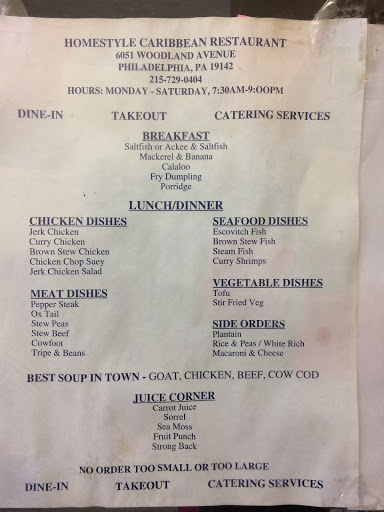 HOMESTYLE CARIBBEAN RESTAURANT
6051 WOODLAND AVENUE
PHILADELPHIA, PA 19142
215-729-0404
HOURS: MONDAY - SATURDAY, 7:30AM-9:OOPM
DINE-IN TAKEOUT CATERING SERVICES
BREAKFAST
Saltfish or Ackee & Saltfish
Mackerel & Banana
Calaloo
Fry Dumpling
Porridge
LUNCH/DINNER
CHICKEN DISHES
Jerk Chicken
Curry Chicken
Brown Stew Chicken
Chicken Chop Suey
Jerk Chicken Salad
MEAT DISHES
Pepper Steak
Ox Tail
Stew Peas
Stew Beef
Cowfoot
Tripe & Beans
SEAFOOD DISHES
Escovitch Fish
Brown Stew Fish
Steam Fish
Curry Shrimps
VEGETABLE DISHES
Tofu
Stir Fried Veg
SIDE ORDERS
Plantain
Rice & Peas / White Rich
Macaroni & Cheese
BEST SOUP IN TOWN - GOAT, CHICKEN, BEEF, COW COD
JUICE CORNER
Carrot Juice
Sorrel
Sea Moss
Fruit Punch
Strong Back
NO ORDER TOO SMALL OR TOO LARGE
DINE-IN TAKEOUT CATERING SERVICES